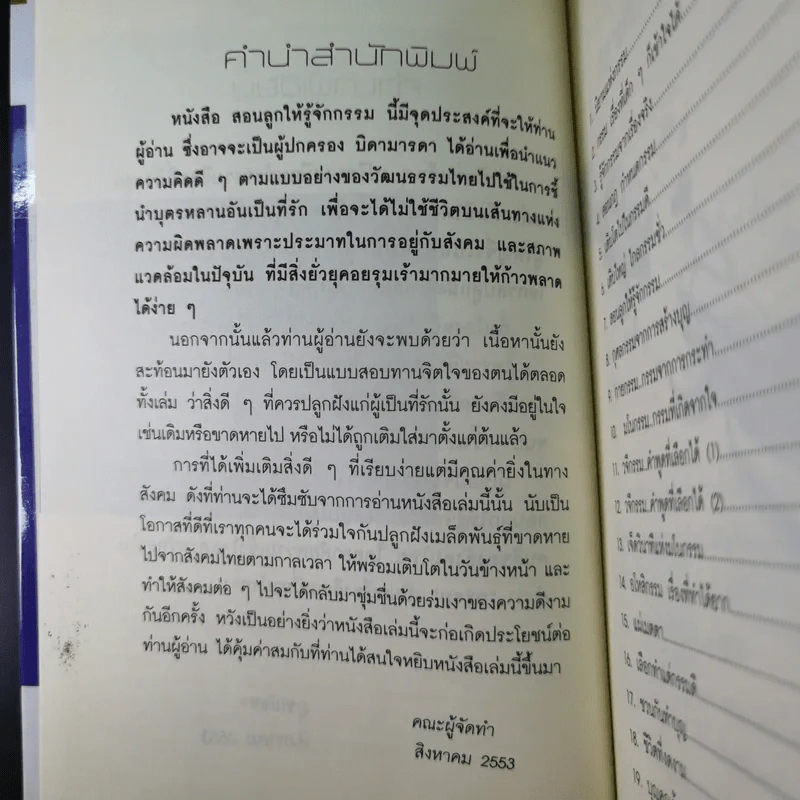 คำนำสำนักพิมพ์
หนังสือ สอนลูกให้รู้จักกรรม นี้มีจุดประสงค์ที่จะให้ท่าน
ผู้อ่าน ซึ่งอาจจะเป็นผู้ปกครอง บิดามารดา ได้อ่านเพื่อนำแนว
ความคิดดี ๆ ตามแบบอย่างของวัฒนธรรมไทยไปใช้ในการชี้
นำบุตรหลานอันเป็นที่รัก เพื่อจะได้ไม่ใช้ชีวิตบนเส้นทางแห่ง
ความผิดพลาดเพราะประมาทในการอยู่กับสังคม และสภาพ
แวดล้อมในปัจุบัน ที่มีสิ่งยั่วยุคอยรุมเร้ามากมายให้ก้าวพลาด
ได้ง่าย ๆ
นอกจากนั้นแล้วท่านผู้อ่านยังจะพบด้วยว่า เนื้อหานั้นยัง
สะท้อนมายังตัวเอง โดยเป็นแบบสอบทานจิตใจของตนได้ตลอด
ทั้งเล่ม ว่าสิ่งดี ๆ ที่ควรปลูกฝังแก่ผู้เป็นที่รักนั้น ยังคงมีอยู่ในใจ
เช่นเดิมหรือขาดหายไป หรือไม่ได้ถูกเติมใส่มาตั้งแต่ต้นแล้ว
การที่ได้เพิ่มเติมสิ่งดี ๆ ที่เรียบง่ายแต่มีคุณค่ายิ่งในทาง
สังคม ดังที่ท่านจะได้ซึมซับจากการอ่านหนังสือเล่มนี้นั้น นับเป็น
โอกาสที่ดีที่เราทุกคนจะได้ร่วมใจกันปลูกฝังเมล็ดพันธุ์ที่ขาดหาย
ไปจากสังคมไทยตามกาลเวลา ให้พร้อมเติบโตในวันข้างหน้า และ
ทำให้สังคมต่อ ๆ ไปจะได้กลับมาชุ่มชื่นด้วยร่มเงาของความดีงาม
กันอีกครั้ง หวังเป็นอย่างยิ่งว่าหนังสือเล่มนี้จะก่อเกิดประโยชน์ต่อ
ท่านผู้อ่าน ได้คุ้มค่าสมกับที่ท่านได้สนใจหยิบหนังสือเล่มนี้ขึ้นมา
คณะผู้จัดทำ
สิงหาคม 2553
1. นิยามแห่งกรรม
2. กรรม เรื่องที่เด็ก ๆ ก็เข้าใจได้
3. รู้จักกรรมจากเรื่องจริง
4. ตอนหนู กำหนดกรรม
5. เติบโตไปในกรรมดี
6. เติบใหญ่ ไกลกรรมชั่ว
7. สอนลูกให้รู้จักกรรม
8. กุศลกรรมจากการสร้างบุญ
9. กายกรรม..กรรมจากการกระทำ
10. มโนกรรม..กรรมที่เกิดจากใจ
11. วจีกรรม..คำพูดที่เลือกได้ (1)
12. วจีกรรม..คำพูดที่เลือกได้ (2)
13. เจ็ดวินาทีแห่งมโนกรรม
14. อโหสิกรรม เรื่องที่ทำได้ยาก
15. แผ่เมตตา
16. เลือกทำแต่กรรมดี
17. ชวนกันทำบุญ
18. ชีวิตที่งดงาม
19.